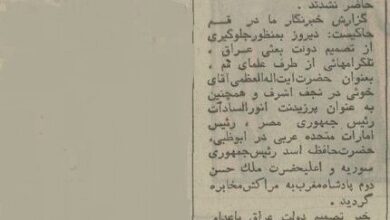 حاضر نشدند .
گزارش خبرنگار ما در قـــم
حاکیست: دیروز بمنظور جلوگیری
از تصمیم دولت بعثی عـــراق ،
تلگرامهائی از طرف علمای قم ،
بعنوان حضرت‌ایت‌اله‌العظمی‌آقای
خوئی در نجف اشرف و همچنین
به عنوان پرزیدنت انورالسادات
رئیس جمهوری مصر ، رئیس
امارات متحده عربی در ابوظبی،
حضرت‌حافظ اسد رئیس‌جمهوری
سوریه و اعلیحضرت ملك حسن
دوم پادشاه‌مغرب‌به مراکش‌مخابره
گردید .
خبر تصمیم دولت عراق باعدام